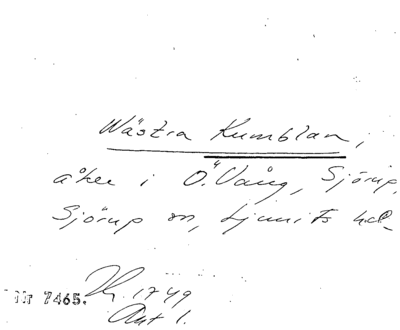 Wästra Kumblan,
åker i Ö. Vång, Sjörup,
Sjörup sn, Ljunits hd.
Nr 7465. 1749
Akt 1.